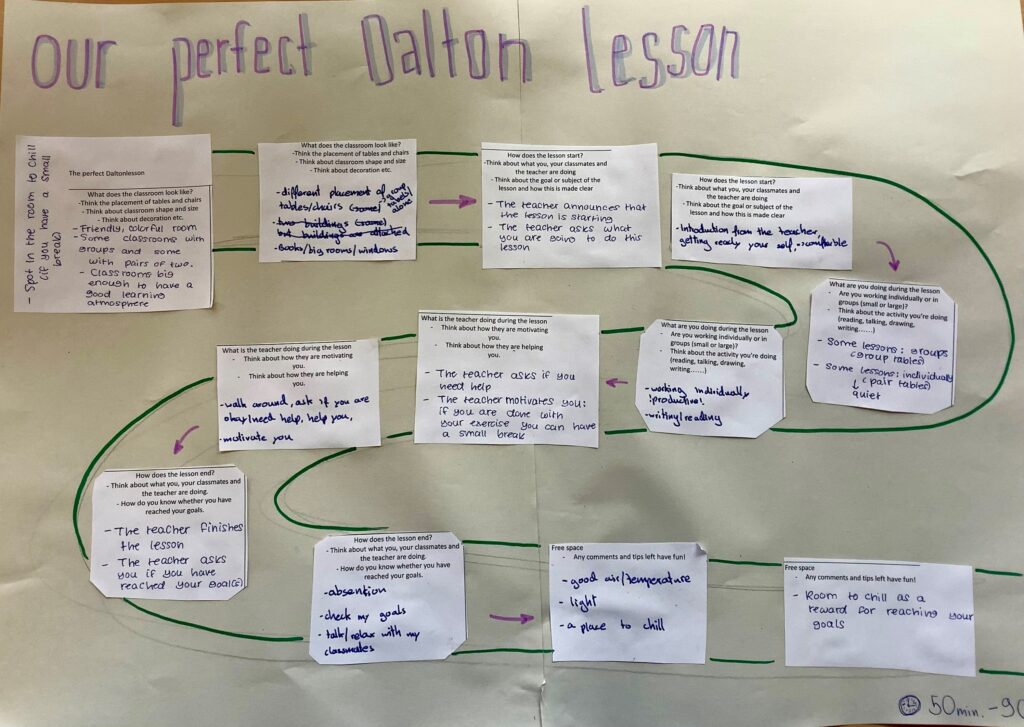 our perfect Dalton lesson
- Spot in the room to chill
(if you have a small
break)
The perfect Daltonlesson
What does the classroom look like?
- Think the placement of tables and chairs
- Think about classroom shape and size
- Think about decoration etc.
- Friendly, colorful room
- Some classrooms with
groups and some
with pairs of two.
- Classrooms big
enough to have a
good learning
atmosphere
What does the classroom look like?
-Think the placement of tables and chairs
- Think about classroom shape and size
- Think about decoration etc.
- different placement of group
tables/chairs (some)
alone
- two buildings (some)
but buildings are attached
- books/big rooms/windows
How does the lesson start?
- Think about what you, your classmates and
the teacher are doing
- Think about the goal or subject of the
lesson and how this is made clear
- The teacher announces that
the lesson is starting
- The teacher asks what
you are going to do this
lesson
How does the lesson start?
- Think about what you, your classmates and
the teacher are doing
- Think about the goal or subject of the lesson
and how this is made clear
- Introduction from the teacher,
getting ready your self, comfortable
What are you doing during the lesson
- Are you working individually or in
groups (small or large)?
- Think about the activity you're doing
(reading, talking, drawing,
writing......)
- Some lessons: groups
(group tables)
- Some lessons: individually
(pair tables)
quiet
What are you doing during the lesson
- Are you working individually or in
groups (small or large)?
- Think about the activity you're doing
(reading, talking, drawing,
writing......)
- working individually
!productive!
- writing/reading
What is the teacher doing during the lesson
- Think about how they are motivating
you.
- Think about how they are helping
you.
- The teacher asks if you
need help
- The teacher motivates you:
if you are done with
your exercise you can have
a small break
What is the teacher doing during the lesson
- Think about how they are motivating
you.
- Think about how they are helping
you.
- walk around, ask if you are
okay/need help, help you,
- motivate you
How does the lesson end?
- Think about what you, your classmates and
the teacher are doing.
- How do you know whether you have
reached your goals.
- The teacher finishes
the lesson
- The teacher asks
you if you have
reached your goal(s)
How does the lesson end?
- Think about what you, your classmates and
the teacher are doing.
- How do you know whether you have
reached your goals.
- absention
- check my goals
- talk/relax with my
classmates
Free space
- Any comments and tips left have fun!
- good air/temperature
- light
- a place to chill
Free space
- Any comments and tips left have fun!
- Room to chill as a
reward for reaching your
goals
50min. - 90